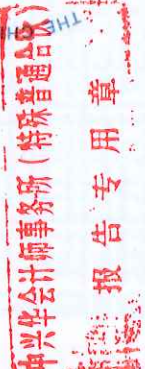 中兴华会计师事务所（特殊普通合伙）
报告专用章
THE CH